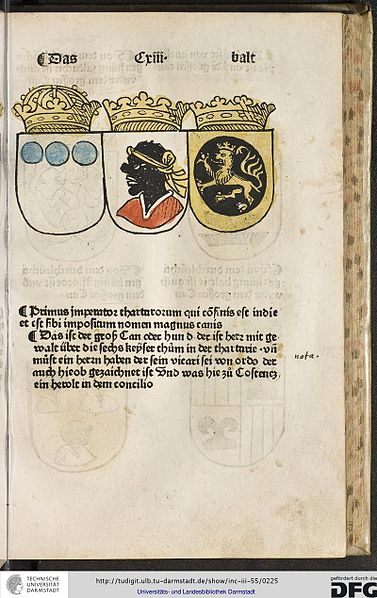 ¶ Das Cxiii· balt
¶ Primus jmperator thartarorum qui cōfinis est indie
et est sibi impositum nomen magnus canis
¶ Das ist der groß Can oder hund der ist herr mit ge
walt über die sechs keyser thům in der thartarie · vñ
můst ein herrn haben der sein vicari sei von ordo der
auch hieob gezaichnet ist Vnd was hie zů Costentz
ein herolt in dem concilio
nota.
TECHNISCHE
UNIVERSITÄT
DARMSTADT
http://tudigit.ulb.tu-darmstadt.de/show/inc-iii-55/0225
Universitäts- und Landesbibliothek Darmstadt
gefördert durch die
DFG